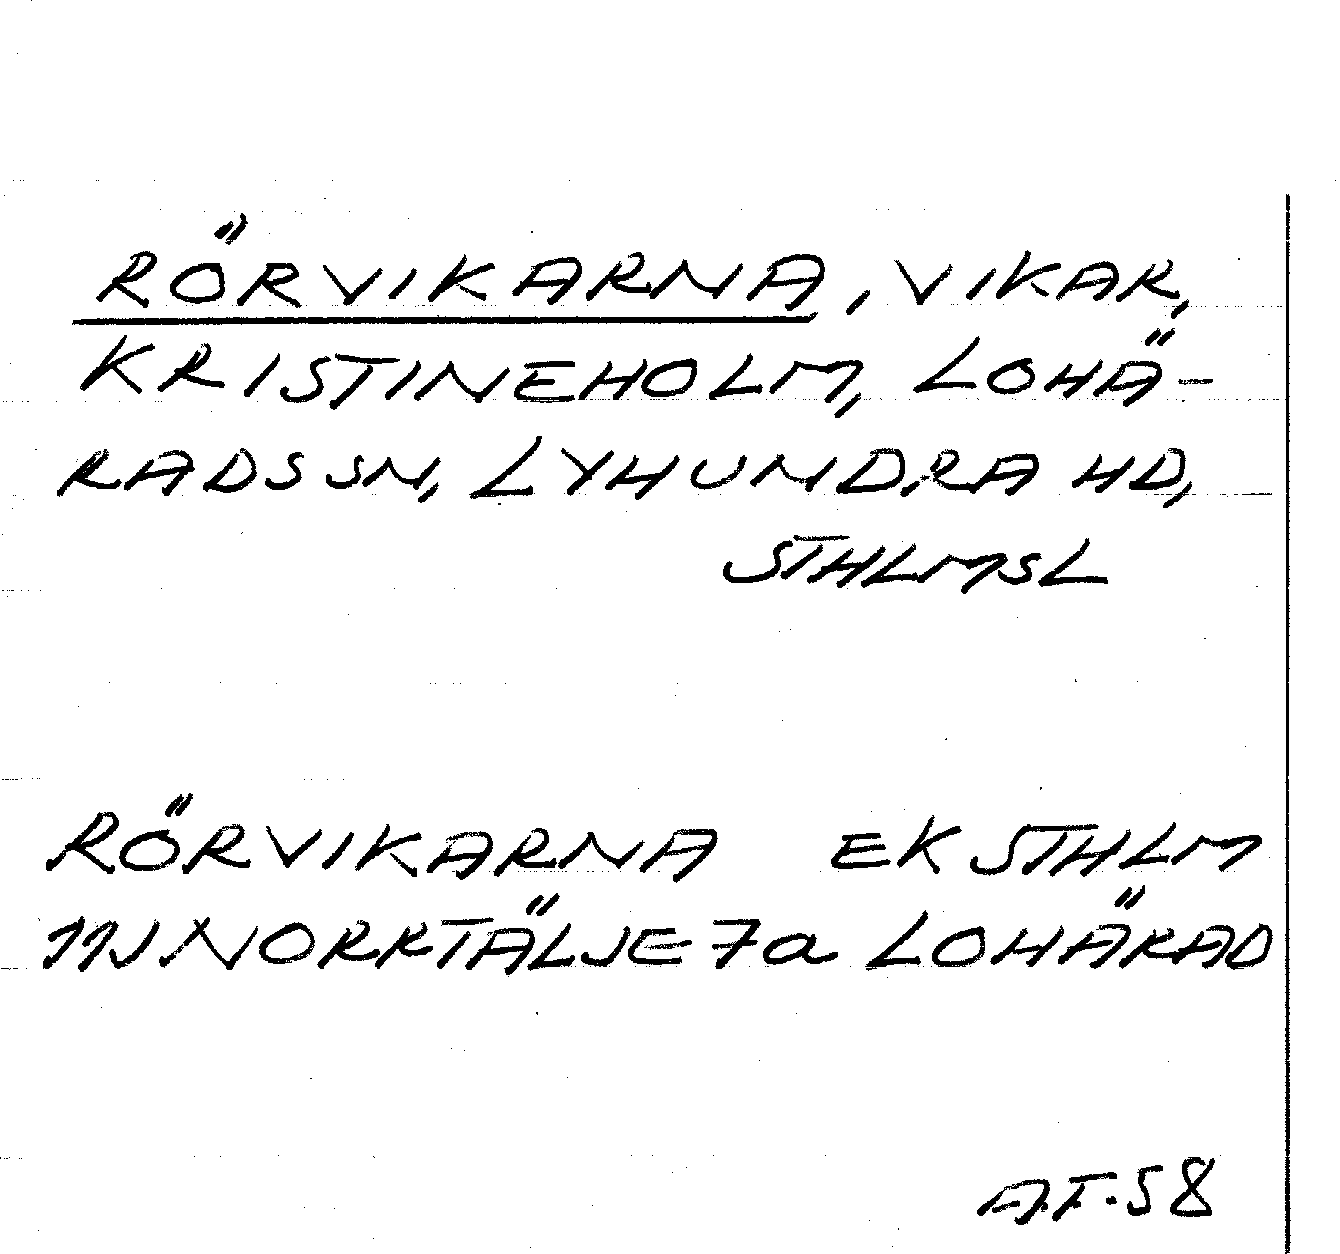 RÖRVIKARNA, VIKAR,
KRISTINEHOLM, LOHÄ-
RADS SN, LYHUNDRA HD,
STHLMSL
RÖRVIKARNA EK STHLM
11J NORRTÄLJE 7a LOHÄRAD
A.F. 58